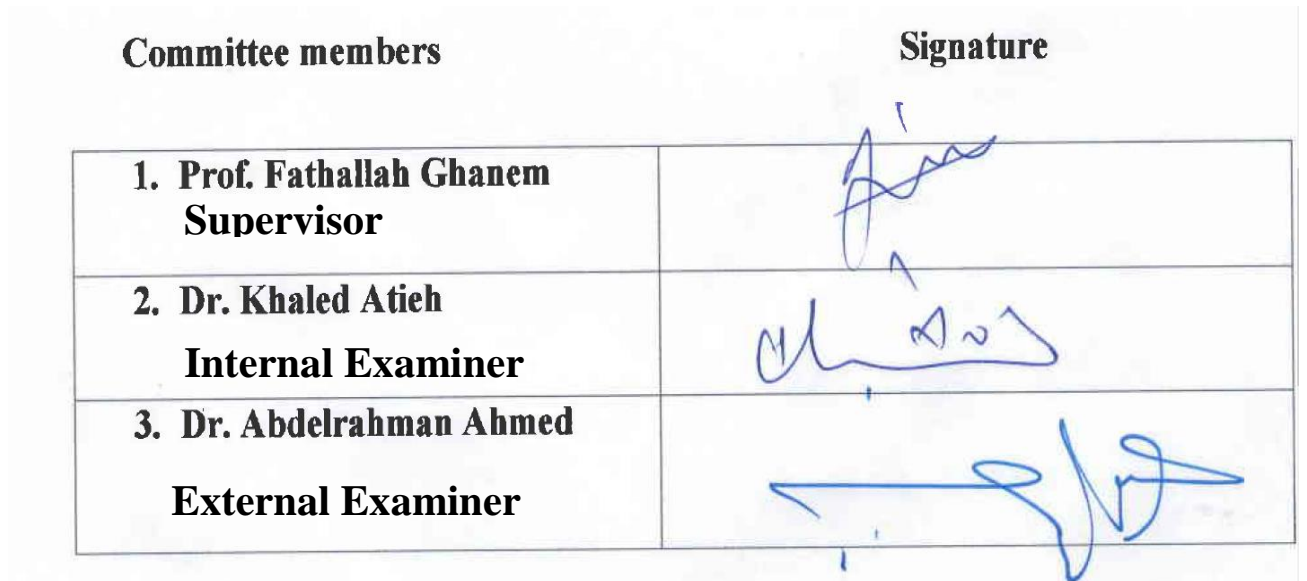 Committee members Signature
1. Prof. Fathallah Ghanem
Supervisor
2. Dr. Khaled Atieh
Internal Examiner
3. Dr. Abdelrahman Ahmed
External Examiner